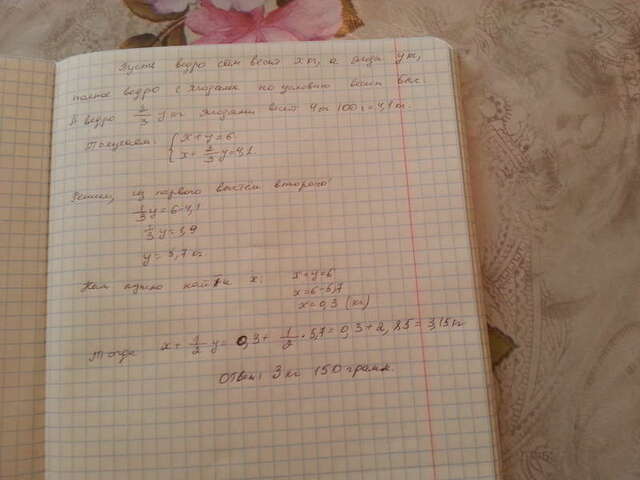 Пусть ведро сам весит x кг, а ягоды y кг,
полное ведро с ягодами по условию весит 6кг.
А ведро 2/3 y кг ягодами весит 4кг 100г = 4,1 кг.
Получаем: { x+y=6
x+2/3y=4,1
Решим, из первого вычтем второго:
1/3y=6-4,1
1/3y=1,9
y=5,7 кг
Нам нужно найти x: x+y=6
x=6-5,7
x=0,3 (кг)
тогда x+1/2y=0,3+1/2·5,7=0,3+2,85=3,15кг
Ответ: 3 кг 150 грамм.